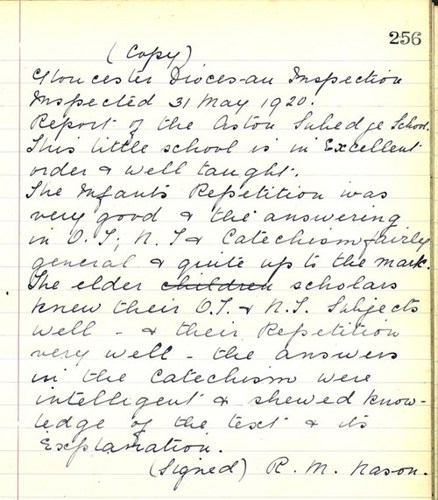 256
(Copy)
Gloucester Diocesan Inspection
Inspected 31 May 1920.
Report of the Aston Subedge School.
This little school is in Excellent
order & well taught.
The Infants Repetition was
very good & the answering
in O.T; N.T & Catechism fairly
general & quite up to the mark.
The elder children scholars
knew their O.T. & N.T. Subjects
well - & their Repetition
very well - the answers
in the Catechism were
intelligent & shewed know-
ledge of the text & its
Explanation.
(Signed) R. M. Nason.